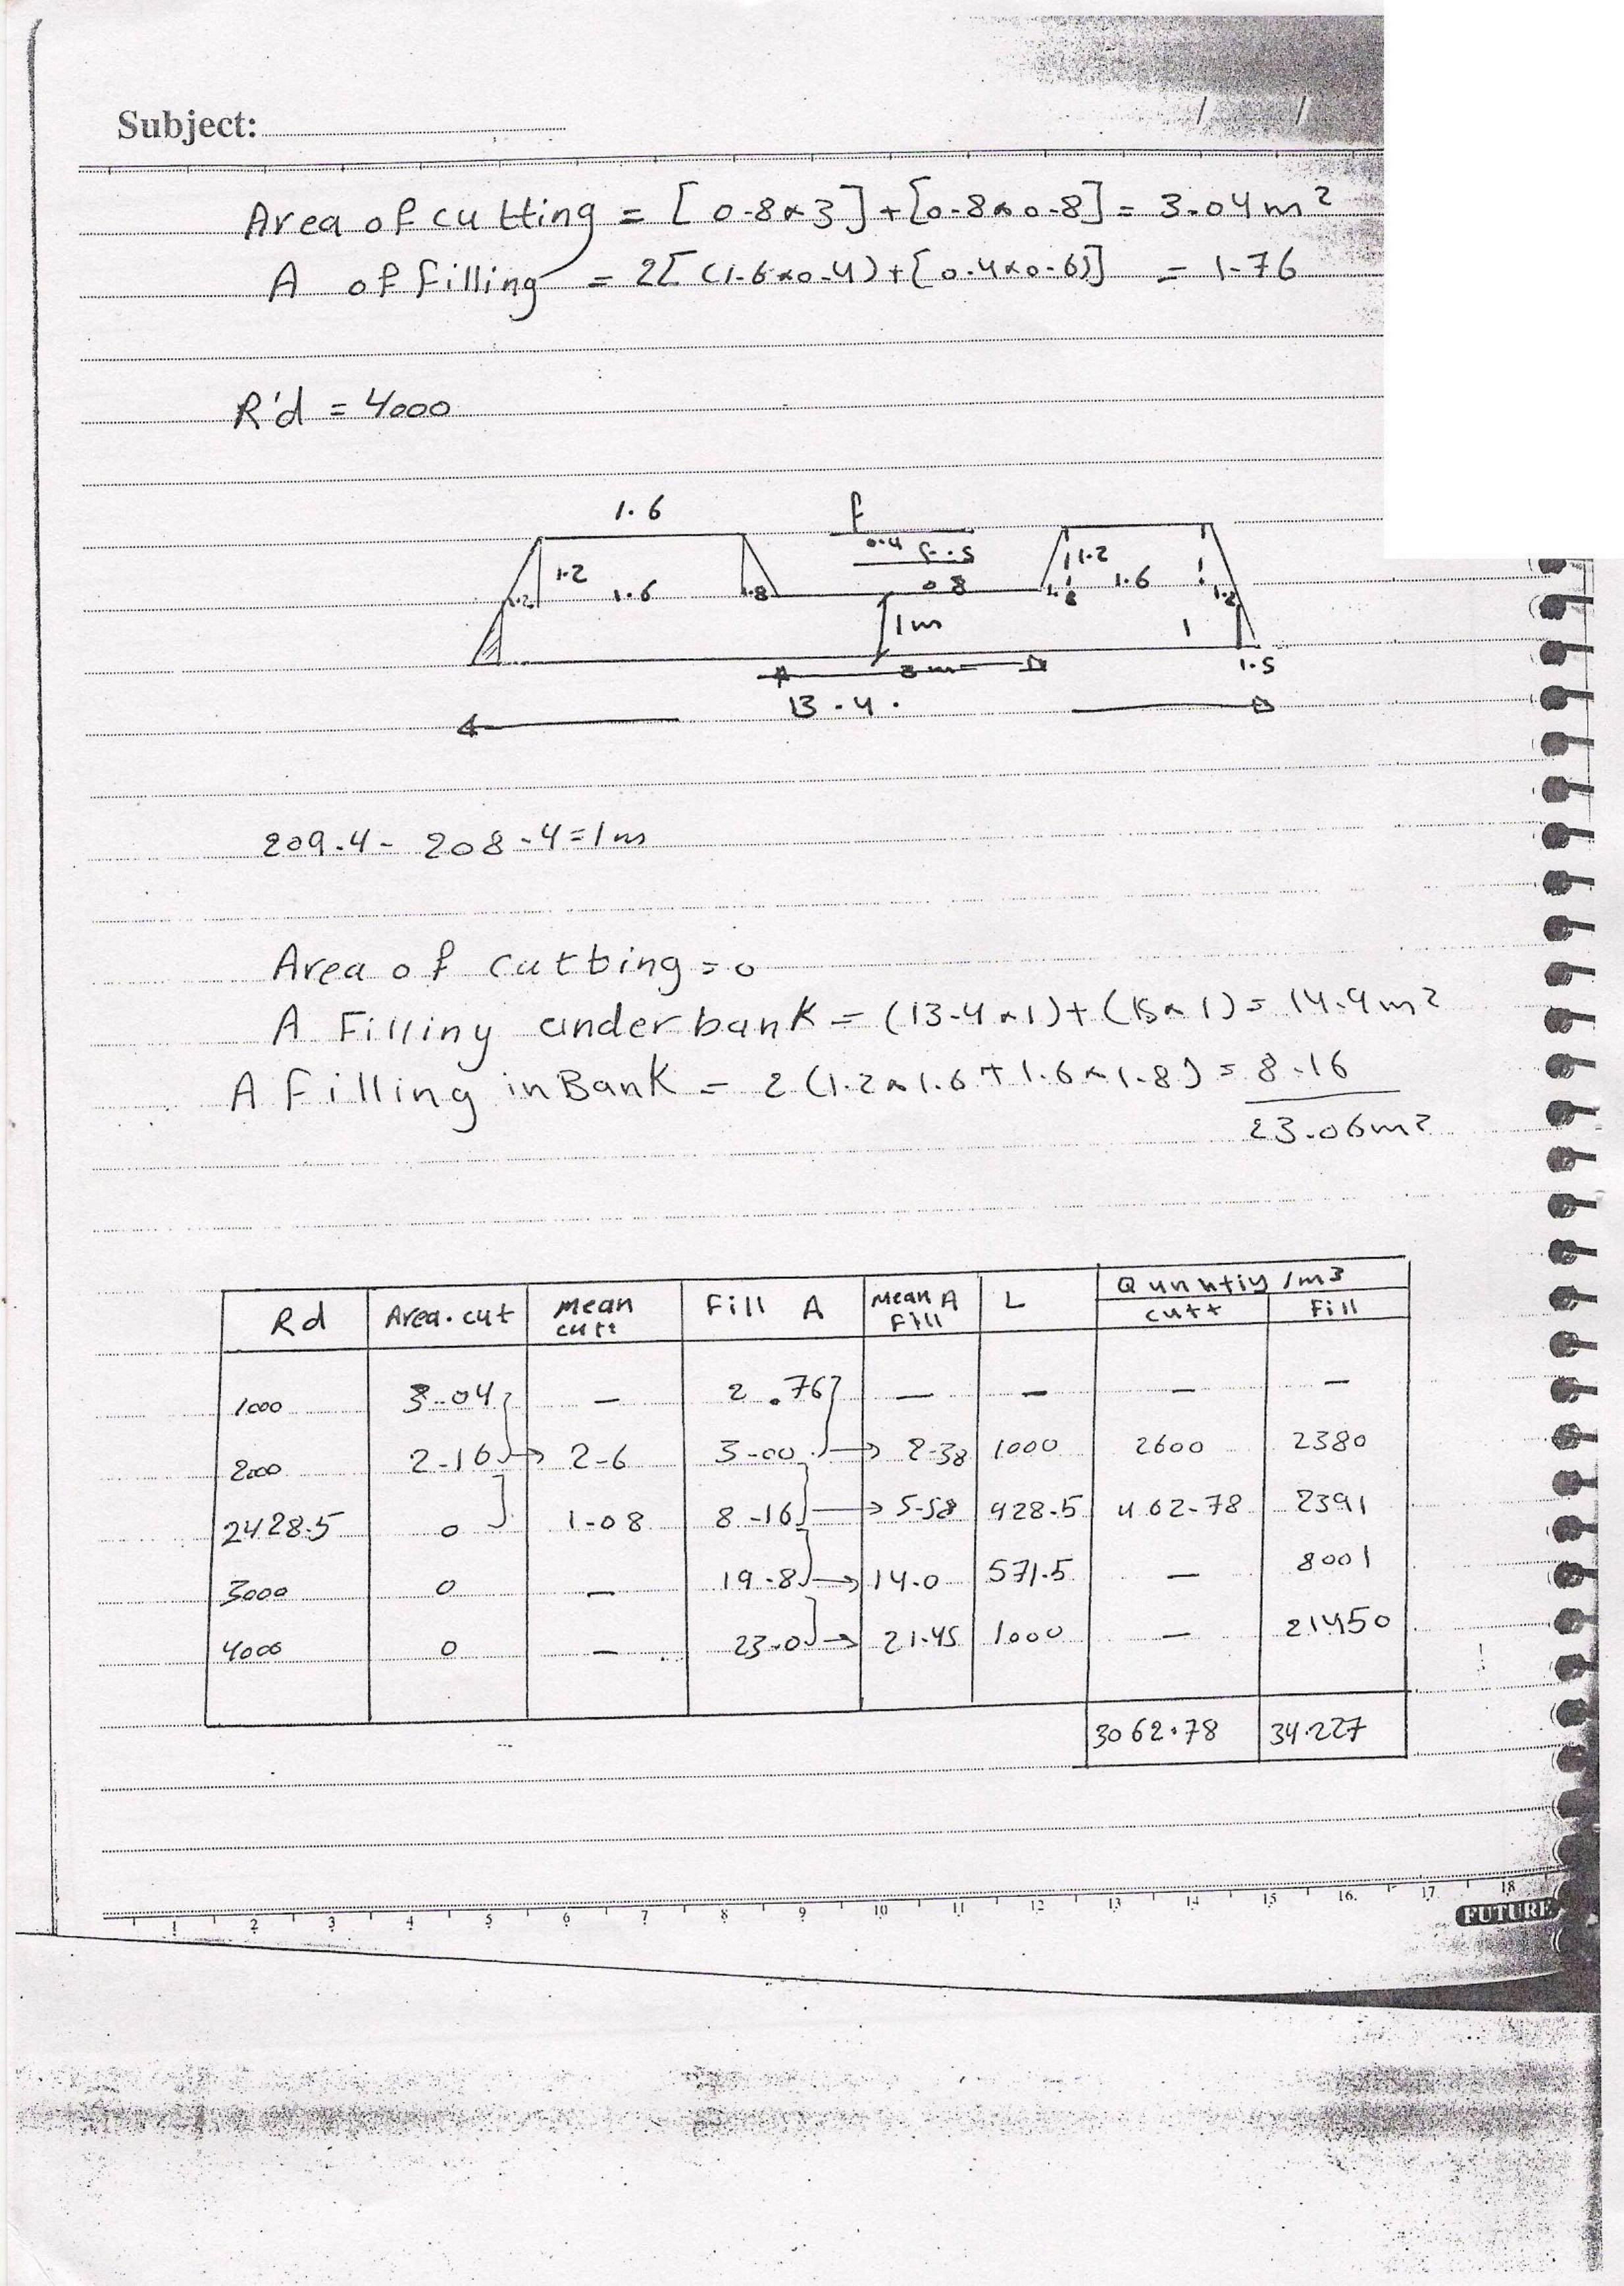 Subject:
/ /
Area of cutting = [0.8×3]+[0.8×0.8] = 3.04m²
A of filling = 2[(1.6×0.4)+[0.4×0.6)] = 1.76
R'd = 4000
1.6 f
0.4 f.s
1.2 1.6 1.8 0.8 1.2 1.6
1.2 1.8 1.2
1m 1
3m 1.5
13.4.
209.4 - 208.4 = 1m
Area of cutting = 0
A Filliny under bank = (13.4×1)+(1.5×1) = 14.9m²
A filling in Bank = 2(1.2×1.6+1.6×1.8) = 8.16
23.06m²
Rd Area.cut Mean cutt Fill A Mean A Fill L Qunhtiy /m3
cutt Fill
1000 3.04 — 2.76 — — — —
2000 2.16 2.6 3.00 2.38 1000 2600 2380
2428.5 0 1.08 8.16 5.58 428.5 462.78 2391
3000 0 — 19.8 14.0 571.5 — 8001
4000 0 — 23.0 21.45 1000 — 21450
3062.78 34.227
1 2 3 4 5 6 7 8 9 10 11 12 13 14 15 16 17 18
FUTURE